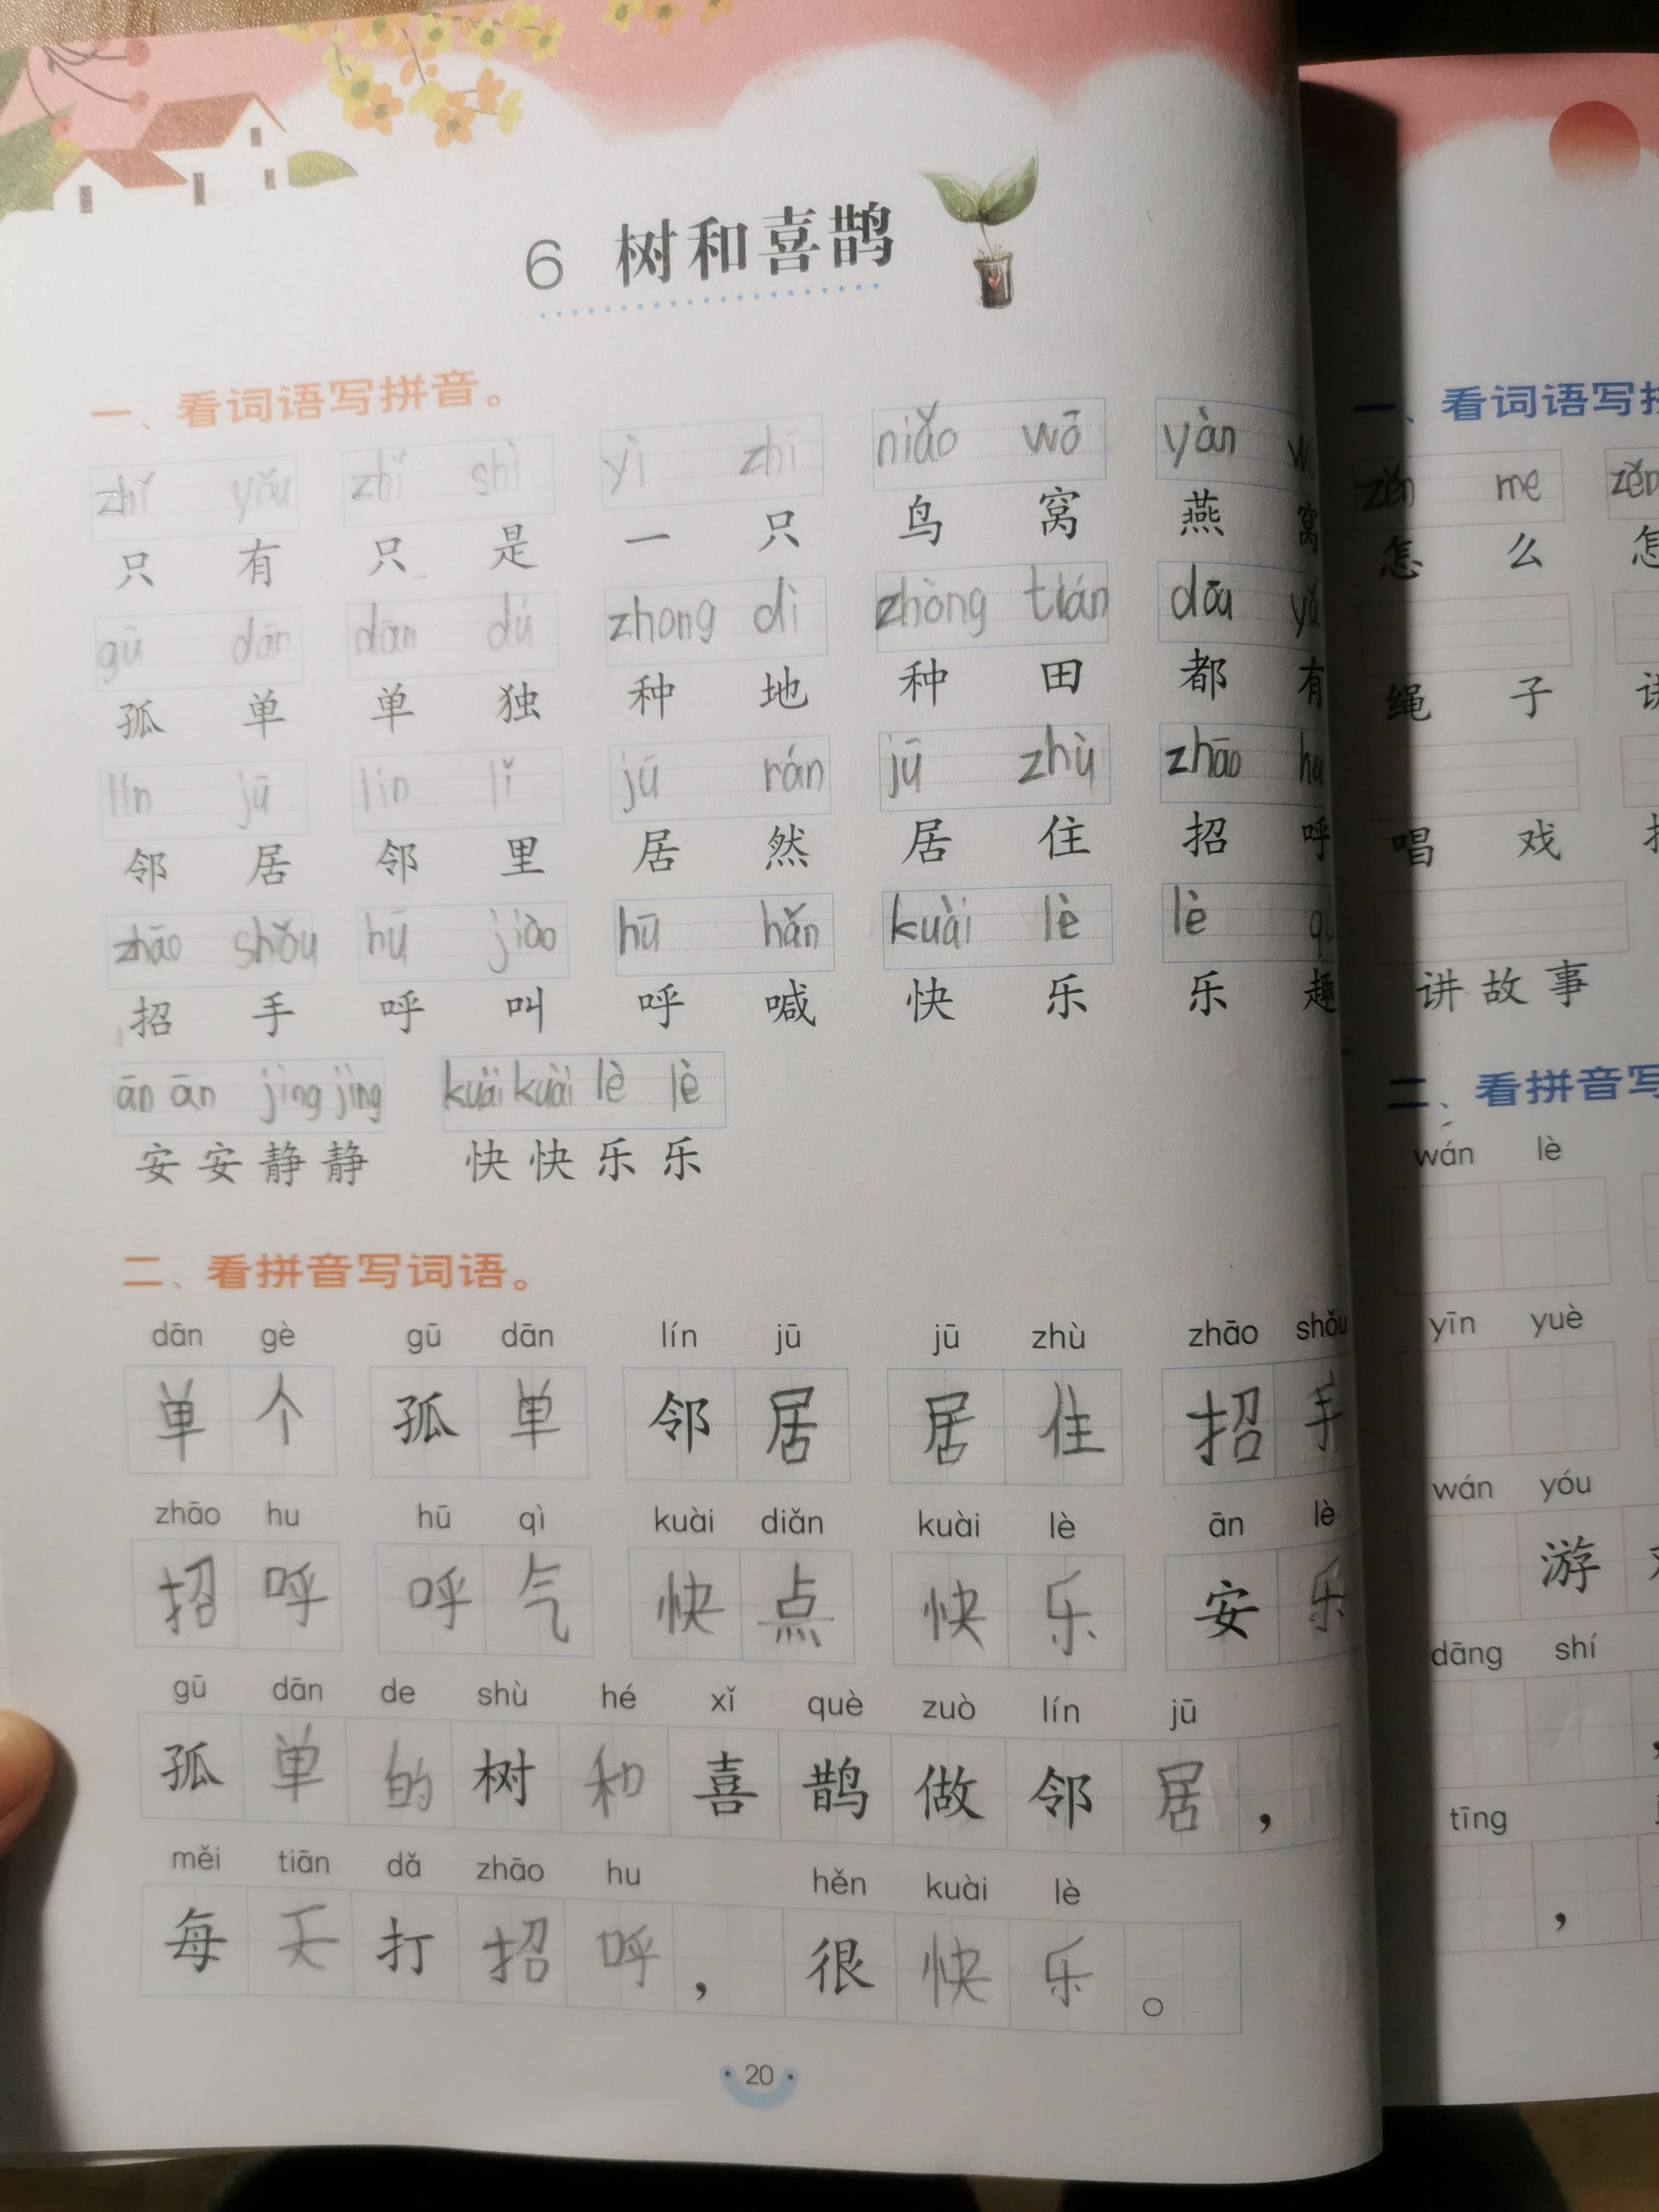 6 树和喜鹊
一、看词语写拼音。
zhǐ yǒu zhǐ shì yì zhī niǎo wō yàn
只有 只是 一只 鸟窝 燕窝
gū dān dān dú zhong dì zhòng tián dōu yǒ
孤单 单独 种地 种田 都有
lín jū lín lǐ jū rán jū zhù zhāo hu
邻居 邻里 居然 居住 招呼
zhāo shǒu hū jiào hū hǎn kuài lè lè q
招手 呼叫 呼喊 快乐 乐趣
ān ān jìng jìng kuài kuài lè lè
安安静静 快快乐乐
二、看拼音写词语。
dān gè gū dān lín jū jū zhù zhāo shǒu
单个 孤单 邻居 居住 招手
zhāo hu hū qì kuài diǎn kuài lè ān lè
招呼 呼气 快点 快乐 安乐
gū dān de shù hé xǐ què zuò lín jū
孤单的树和喜鹊做邻居，
měi tiān dǎ zhāo hu hěn kuài lè
每天打招呼，很快乐。
20
一、看词语写
zěn me zěn
怎么 怎
绳子
唱戏
讲故事
二、看拼音写
wán lè
yīn yuè
wán yóu
游
dāng shí
，
tīng
，